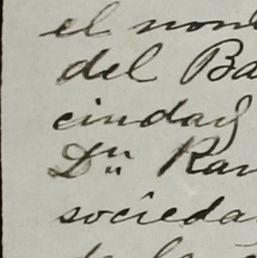 el nom
del Ba
ciudad
Dn Ran
socieda
de la